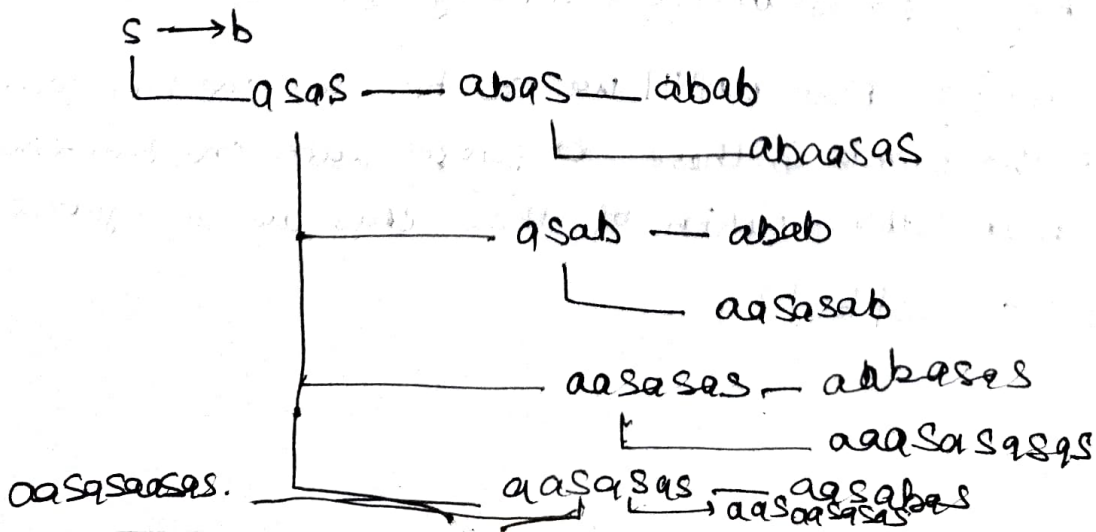 s → b
asas — abas — abab
abaasas
asab — abab
aasasab
aasasas — aabasas
aaasasasas
aasasaasas. aasasas — aasabas
aasaasasas